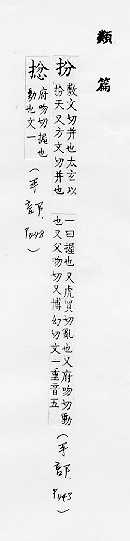 類篇
扮
敷文切并也太玄以
扮天又方文切并也
一曰握也又虎買切亂也又府吻切動
也又父吻切又博幻切文一重音五
(手部 P443)
府吻切握也
動也文一
(手部 P448)